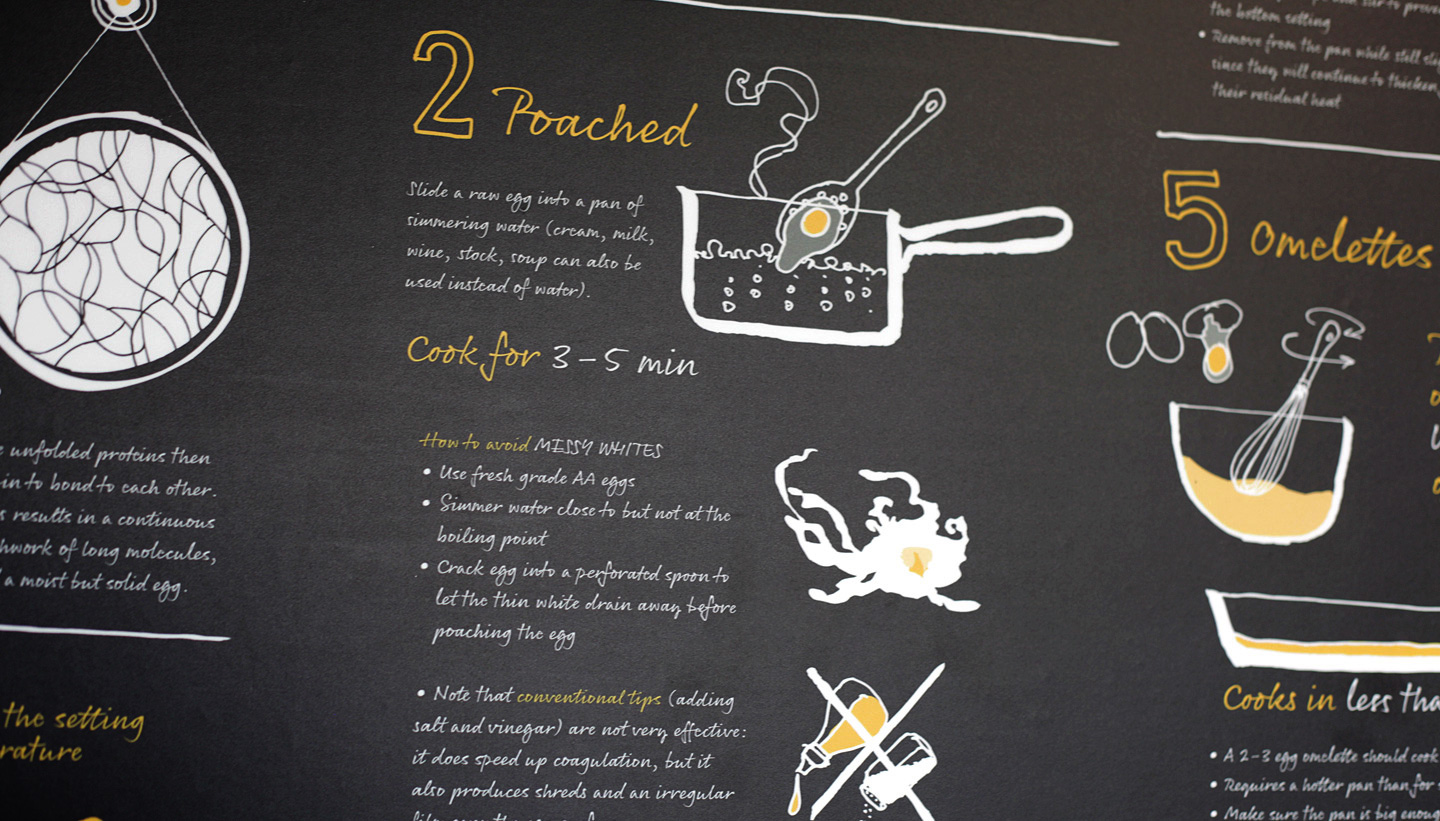 unfolded proteins then
in to bond to each other.
results in a continuous
of long molecules,
a moist but solid egg.
the setting
2 Poached
Slide a raw egg into a pan of
simmering water (cream, milk,
wine, stock, soup can also be
used instead of water).
Cook for 3–5 min
How to avoid MESSY WHITES
• Use fresh grade AA eggs
• Simmer water close to but not at the
boiling point
• Crack egg into a perforated spoon to
let the thin white drain away before
poaching the egg
• Note that conventional tips (adding
salt and vinegar) are not very effective:
it does speed up coagulation, but it
also produces shreds and an irregular
the bottom setting
• Remove from the pan while still
since they will continue to thicken
their residual heat
5 Omelettes
Cooks in less
• A 2–3 egg omelette should cook
• Requires a hotter pan than for
• Make sure the pan is big